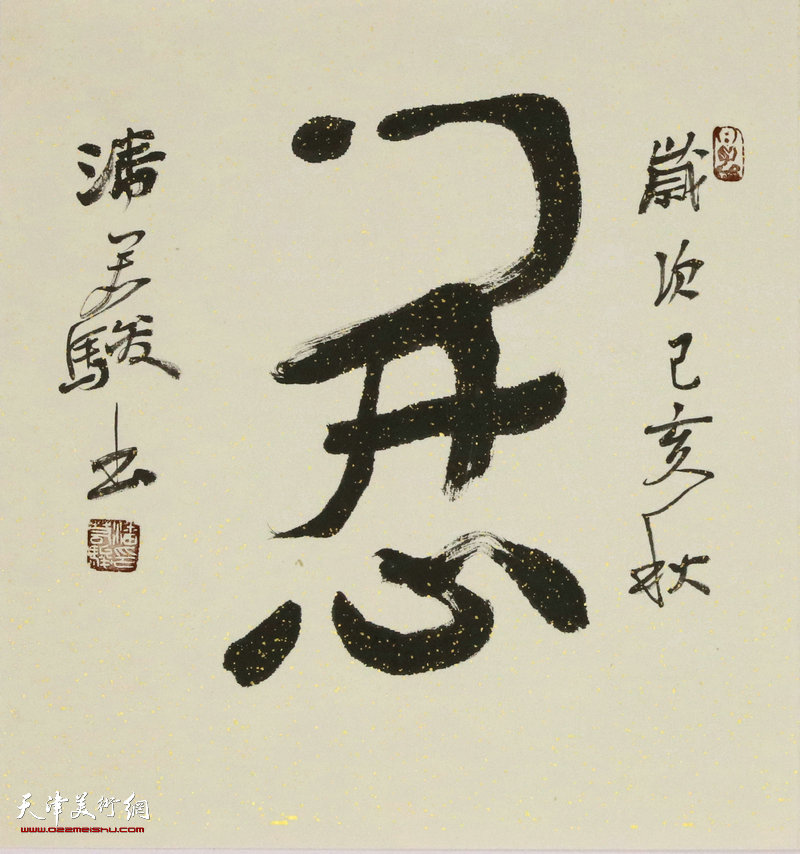 歲次己亥秋
開
心
駿书
天津美術網
www.022meishu.com